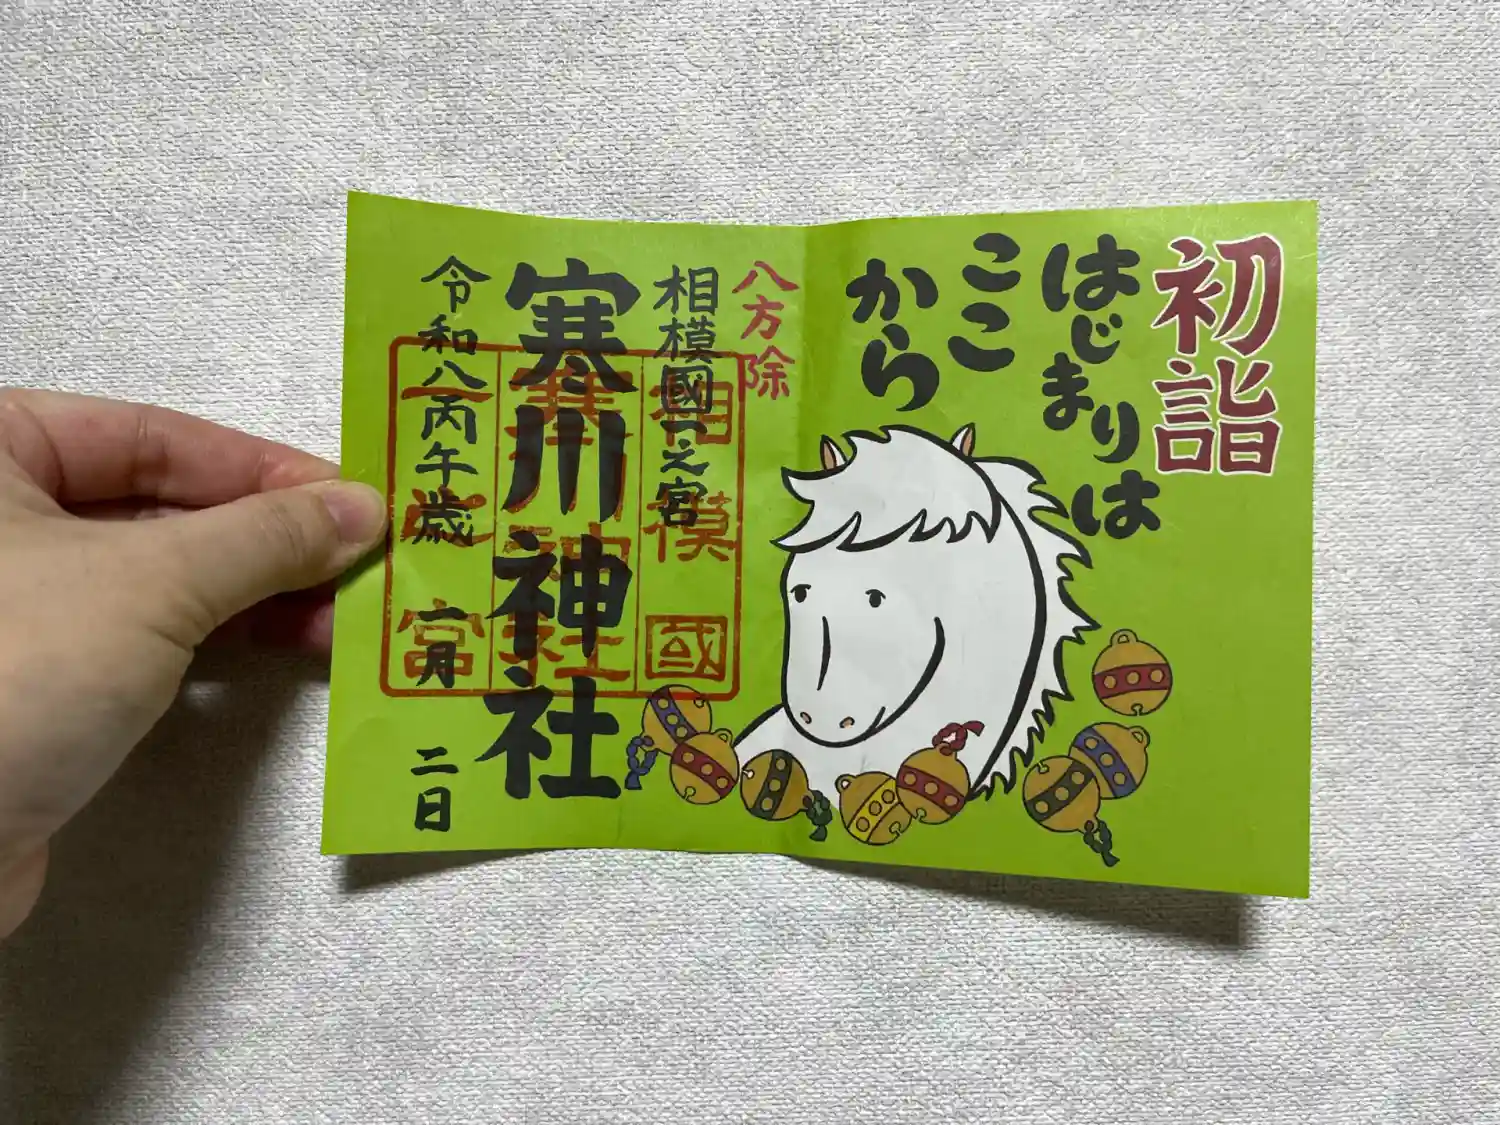 初詣
はじまりは
ここ
から
八方除
相模國一之宮
寒川神社
令和八丙午歳 一月 二日
相模國
寒川神社
一之宮